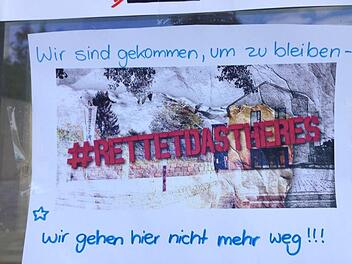 Wir sind gekommen, um zu bleiben -
#RETTETDASTHERES
Wir gehen hier nicht mehr weg!!!